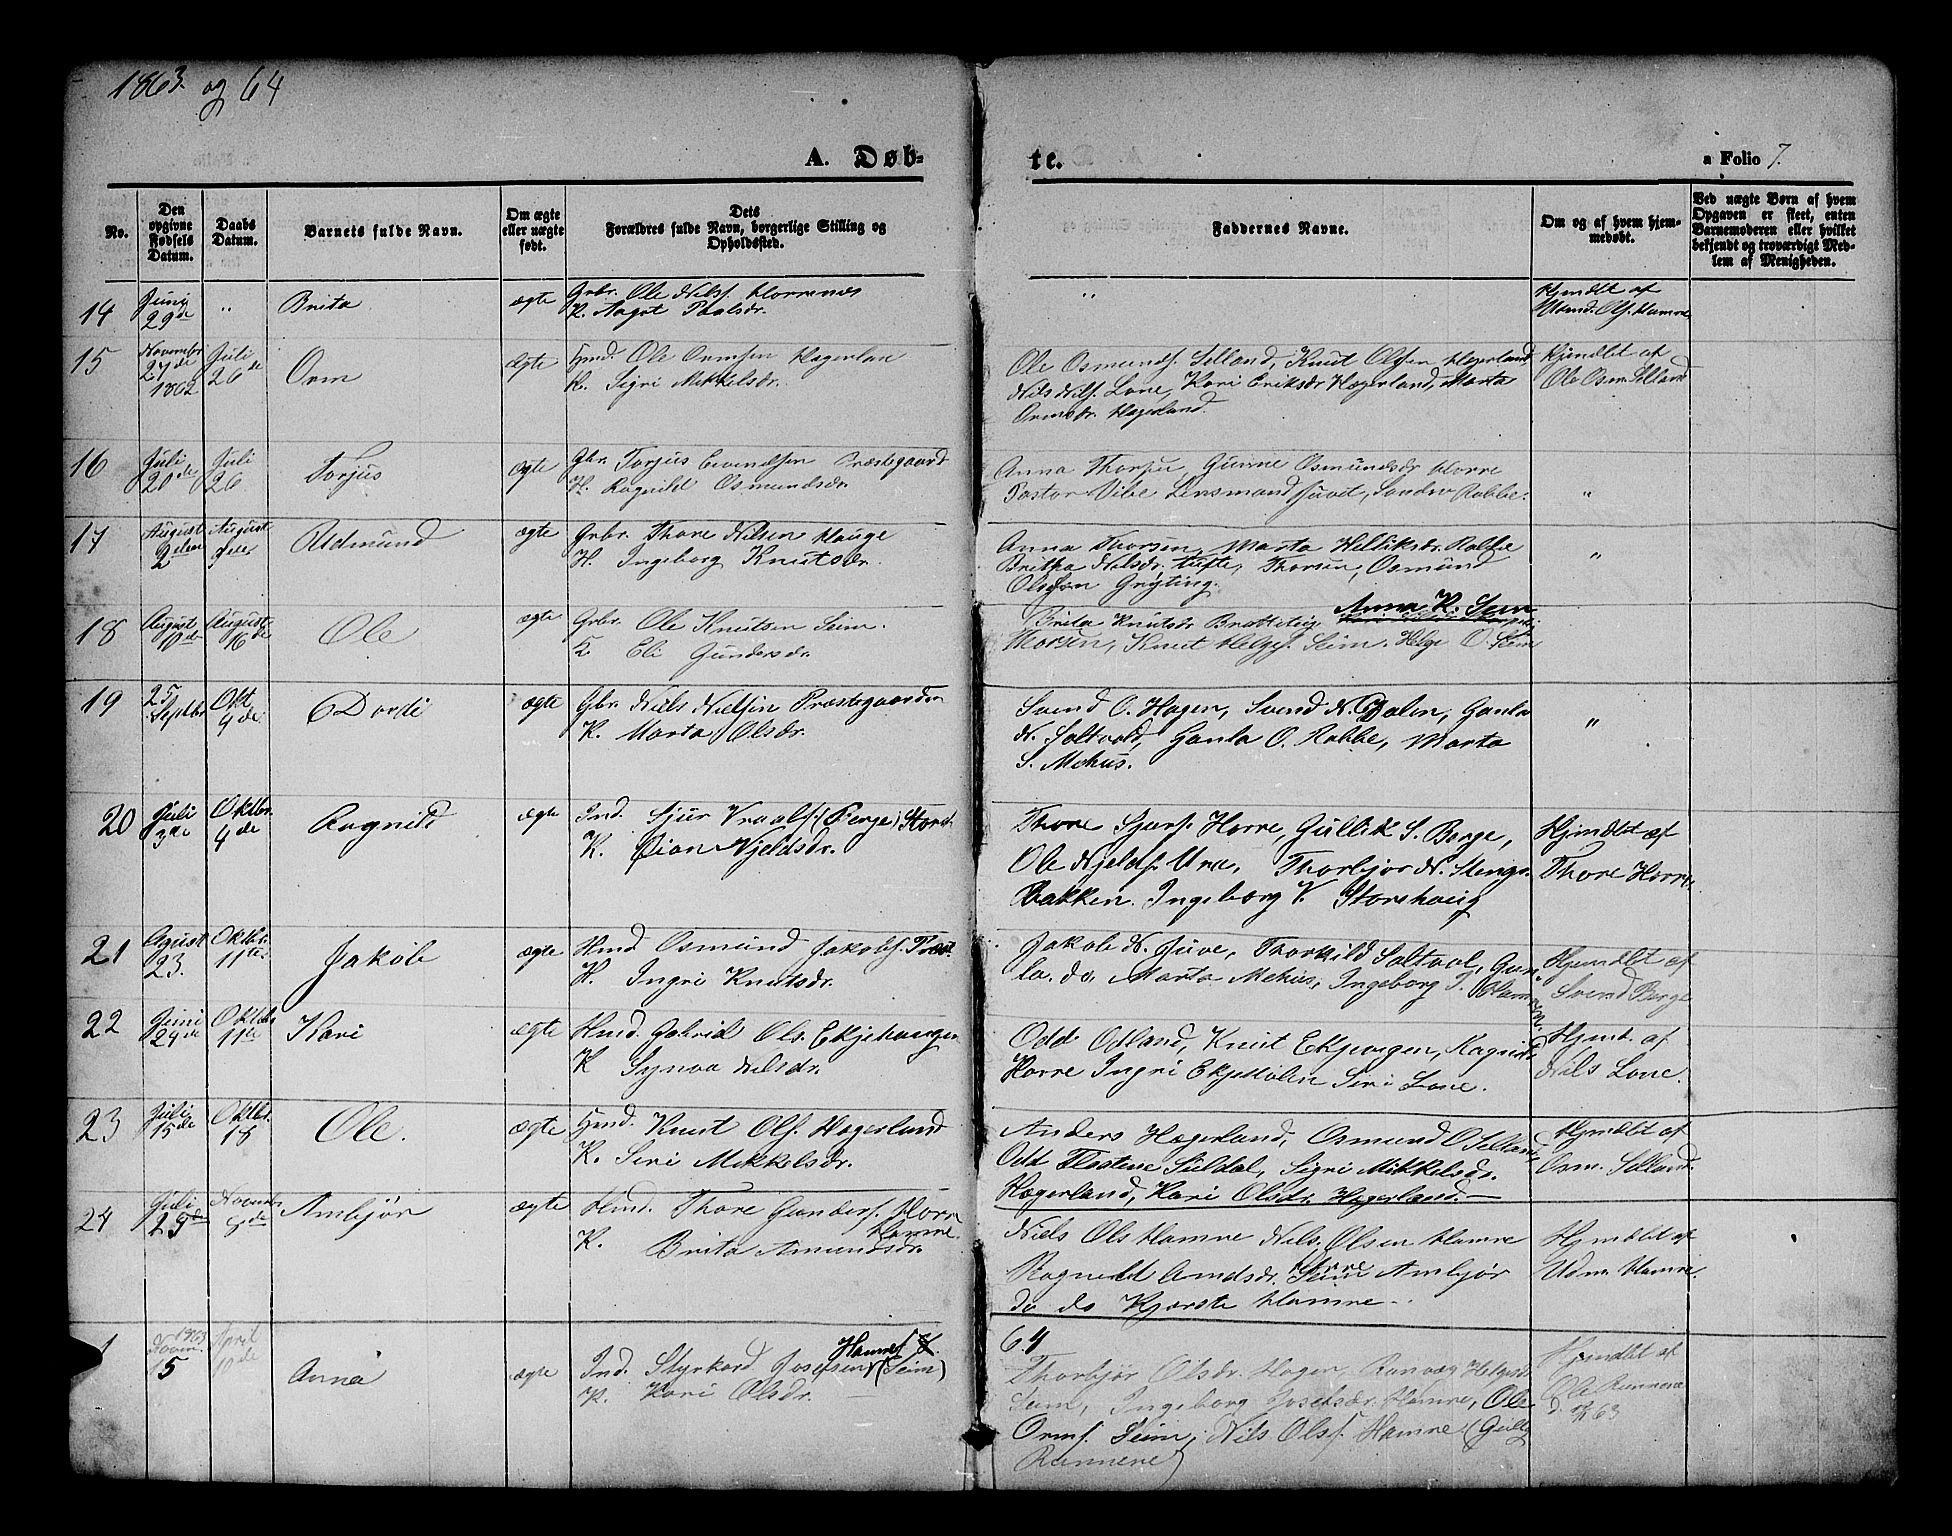 1863 og 64
A. Døb-
te.
a Folio 7.
No.
Den opgivne Fødsels Datum.
Daabs Datum.
Barnets fulde Navn.
Om ægte eller uægte født.
Dets Forældres fulde Navn, borgerlige Stilling og Opholdssted.
Faddernes Navne.
Om og af hvem hjemmedøbt.
Ved uægte Børn af hvem Opgaven er skeet, enten Barnemoderen eller hvilket bekjendt og troværdigt Medlem af Menigheden.
14 Juni 29de " Brita ægte Gbr. Ole Nilsf. Horrenæs
K. Aagot Paalsdr.
"
Hjmdbt af
Udmd. Ols. Hamre
15 November 27de 1862 Juli 26de Orm ægte Hmd. Ole Ormsen Hagerlan
K. Sigri Mikkelsdr.
Ole Osmundsf. Selland, Knut Olsen Hægerland,
Nils Nilsf. Lone, Kari Eriksdr Hægerland, Marta
Ormsdr. Hagerland.
Hjmdbt af
Ole Osm. Selland
16 Juli 20de Juli 26 Torjus ægte Gbr. Torjus Eivendsen Præstegaard
H. Ragnild Osmundsdr.
Anna Thorsen, Gunne Osmundsdr Horre
Pastor Vibe Lensmand Juvet, Sander Rabbe.
"
17 August 2den August 9de Udmund ægte Grbr. Thore Nilsen Hauge
H. Ingeborg Knutsdr.
Anna Thorsen, Marta Velliksdr. Rabbe
Britha Nilsdr. Tufte, Thorsen, Osmund
Olsen Grÿting.
"
18 August 10de August 16de Ole ægte Grbr. Ole Knutsen Seim.
K Eli Gundersdr.
Brita Knutsdr Bratteteig Anna K. Seim
Thorsen, Knut Helgesf. Seim. Helge O. Seim
19 25 Septbr Okt 4de Dordi ægte Gbr. Niels Nielsen Præstegaarden
K. Marta Olsdr.
Svend O. Hagen, Svend N. Dalen, Gunla
N. Saltvold, Gunla O. Rabbe, Marta
S. Mehus.
"
20 Juli 3de Oktbr. 4de Ragnild ægte Ind. Sjur Vraalsf. (Berge) Storeh.
K. Gion Kjeldsdr.
Thore Sjursf. Horre, Gullik S. Berge,
Ole Kjeldsf. Ura, Thorbjør N. Stengs-
bakken. Ingeborg V. Storehaug
Hjmdbt af
Thore Horre
21 Agust 23. Oktbr. 11te Jakob ægte Hmd Osmund Jakobsf.
K. Ingri Knutsdr.
Jakob N. Juve, Thorkild Saltval, Gun-
la. do. Marta Mehus, Ingeborg J.
Hjmdbt af
Svend Berge
22 Juni 24de Oktbr 11te Kari ægte Hmd. Gabriel Ols. Ekjehaugen
K Synva Nilsdr.
Odd Øtland, Knut Ekjeaugen, Ragnild
Horre Ingri Ekjemoen Siri Lone.
Hjmd. af
Nils Lone.
23 Juli 15de Oktbr. 18 Ole. ægte Hmd. Knut Olsf. Hagerland
K. Siri Mikkelsdr.
Anders Hægerland, Osmund O. Selland
Odd Flotene Suldal, Sigri Mikkelsdr.
Hægerland, Kari Olsdr. Hegerland.
Hjmdbt af
Osm. Selland.
24 Juli 29de Novembr 8de Ambjør ægte Hmd. Thore Gundersf. Horre
Hamre.
K. Brita Amundsdr.
Niels Ols Hamre Nils. Olsen Hamre
Ragneld Amdsdr. Seim Horre Ambjør
do do Kjerste Hamre.
Hjmdbt af
Udm. Hamre.
64
1 1863 Novm. 15 April 10de Anna ægte Ind. Styrkard Josefsen Hamre (Seim)
K. Kari Olsdr.
Thorbjør Olsdr. Hagen, Ranvæg Helgesdr.
Seim, Ingeborg Josefsdr. Hamre, Ole
Ormsf. Seim, Nils Olsf. Hamre
Rannene
Hjmdbt af
Ole Rannene